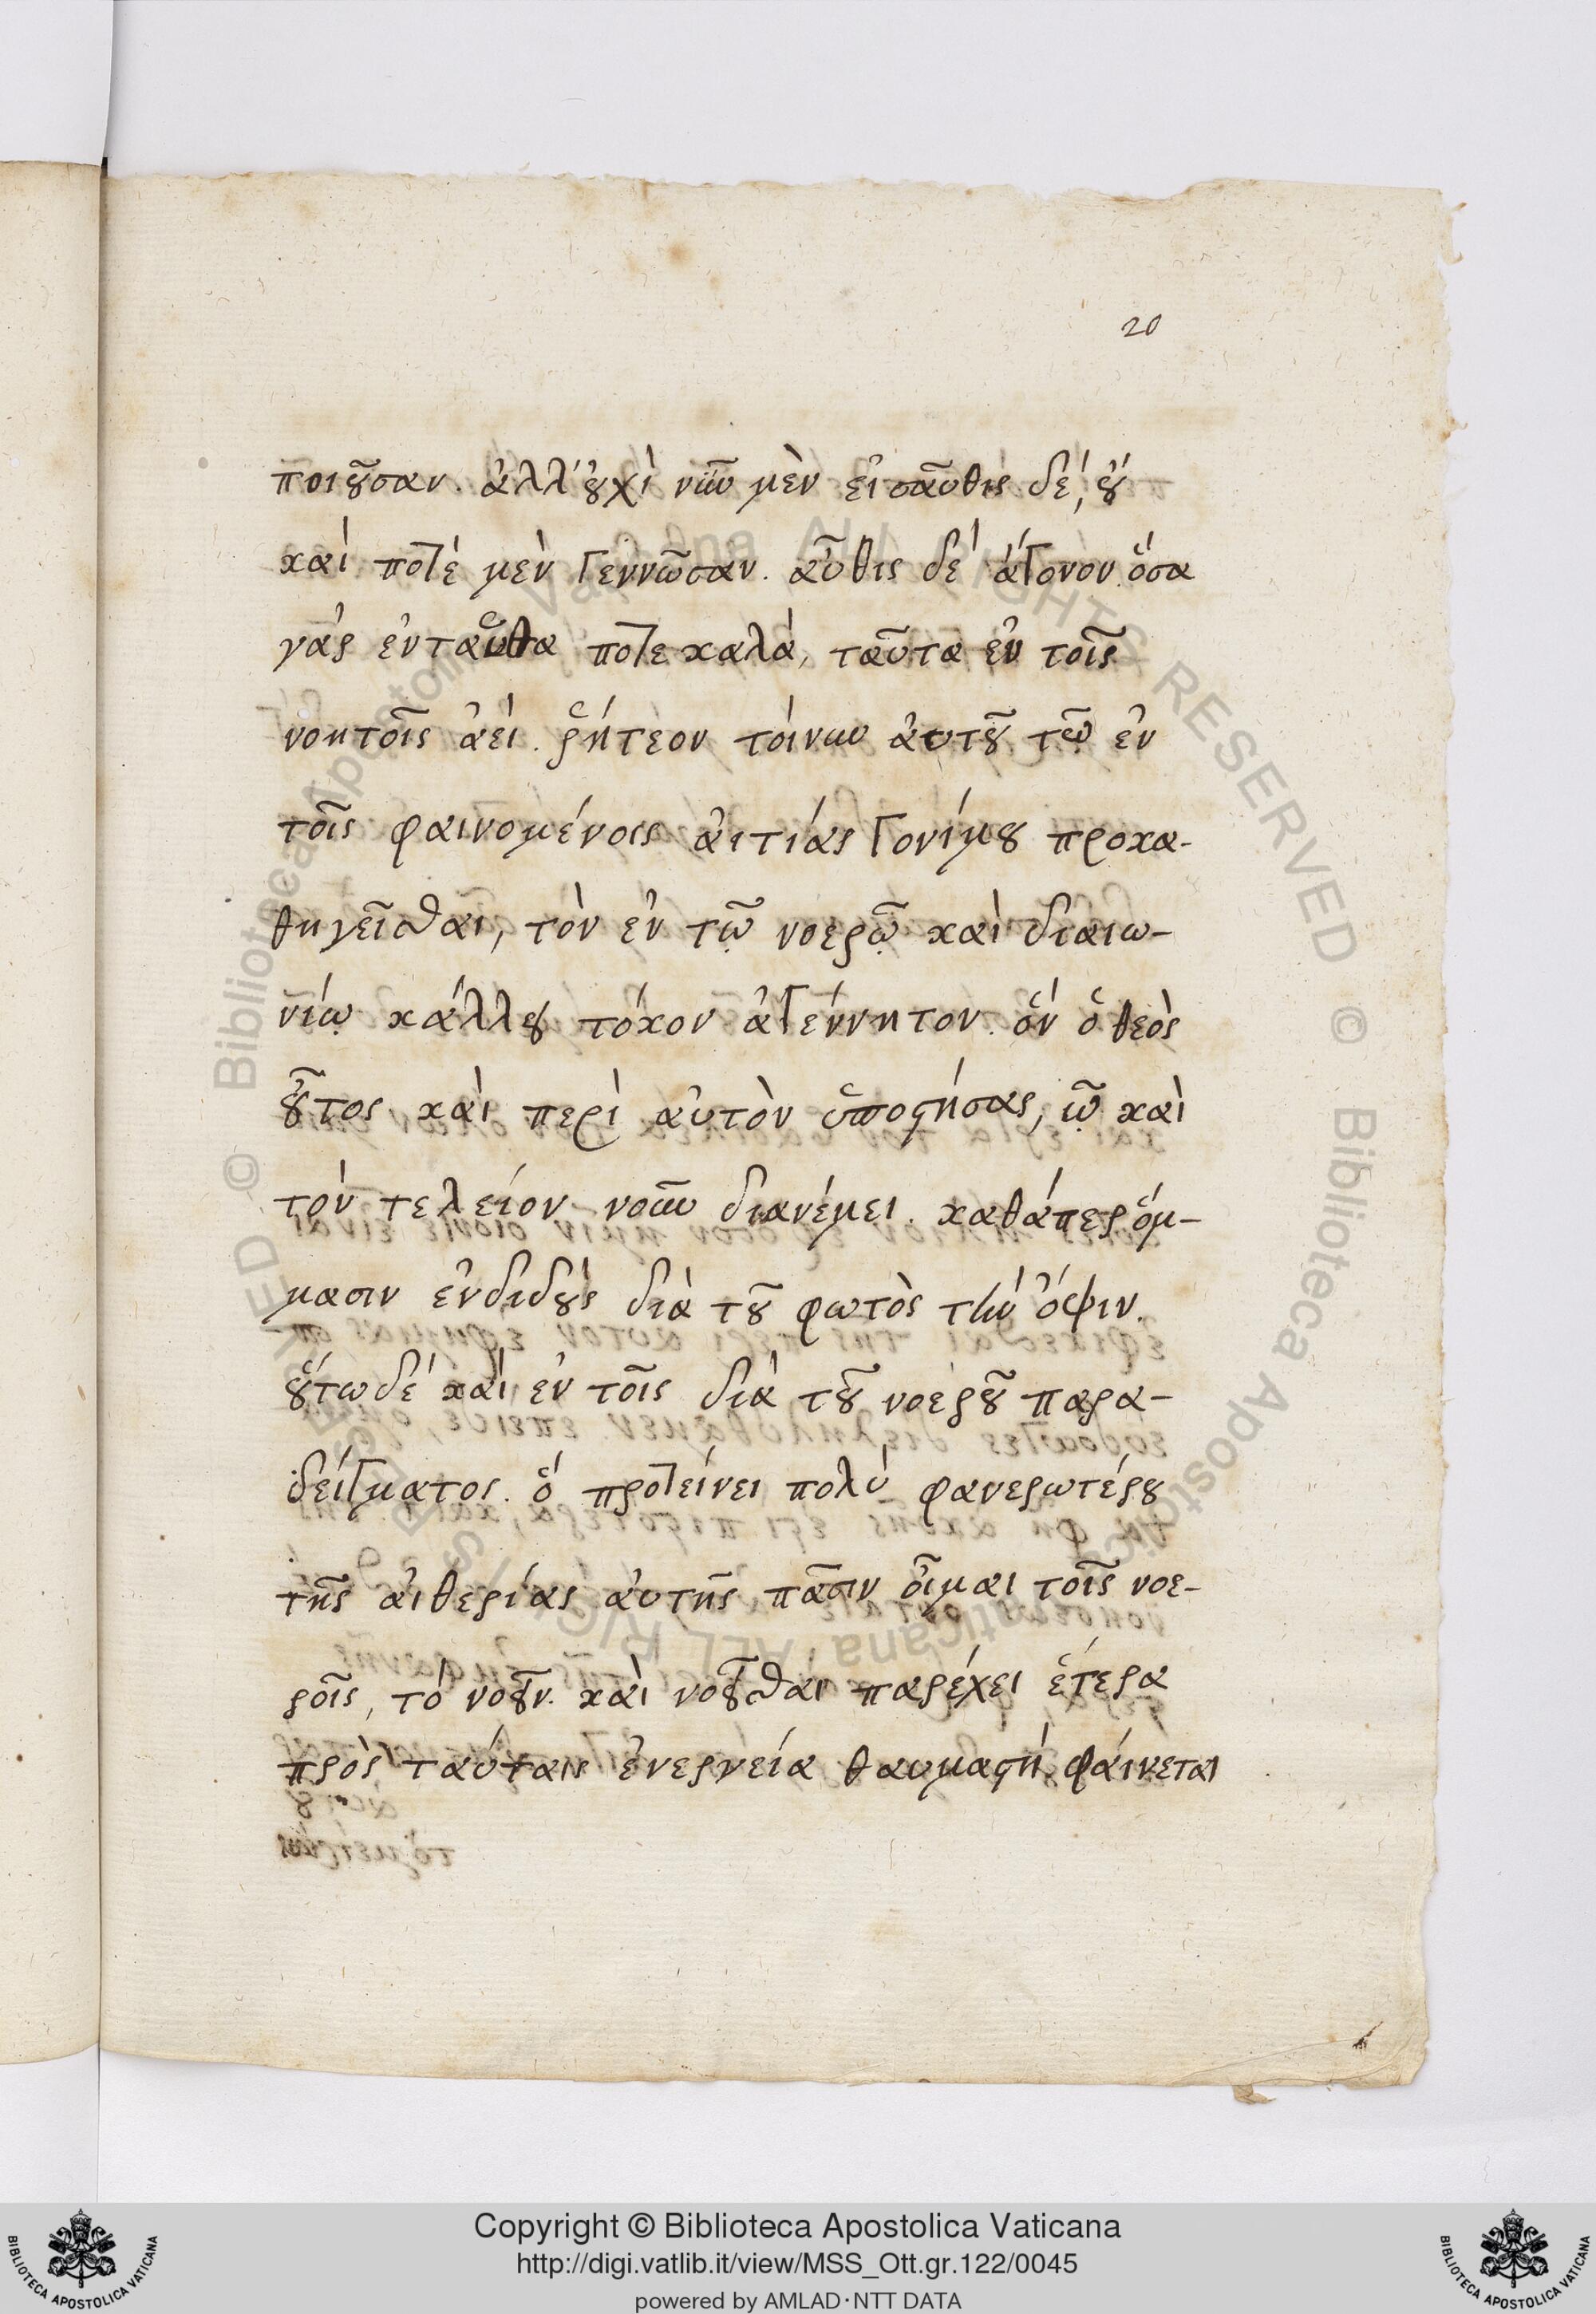 20
ποιοῦσαν. ἀλλ' οὐχὶ νῦν μὲν εἰσαῦθις δέ, οὐ
καὶ ποτὲ μὲν γεννῶσαν. αὖθις δὲ ἄγονον. ὅσα
γὰρ ἐνταῦθα ποτε καλά, ταῦτα ἐν τοῖς
νοητοῖς ἀεί. ῥήτεον τοίνυν αὐτοῦ τῷ ἐν
τοῖς φαινομένοις αἰτίας γονίμου προκα-
θηγεῖσθαι, τὸν ἐν τῷ νοερῷ καὶ διαιω-
νίῳ κάλλου τόκον ἀγέννητον. ὃν ὁ θεὸς
οὗτος καὶ περὶ αὐτὸν ὑποστήσας, ᾧ καὶ
τὸν τελείον νοῦν διανέμει. καθάπερ ὄμ-
μασιν ἐνδιδοὺς διὰ τοῦ φωτὸς τὴν ὄψιν.
οὕτω δὲ καὶ ἐν τοῖς διὰ τοῦ νοεροῦ παρα-
δείγματος. ὃ προτείνει πολὺ φανερωτέρου
τῆς αἰθερίας αὐτῆς πᾶσιν οἶμαι τοῖς νοε-
ροῖς, τὸ νοοῦν. καὶ νοοῦσθαι παρέχει ἑτέρα
πρὸς ταύταις ἐνεργεία θαυμαστὴ φαίνεται
Copyright © Biblioteca Apostolica Vaticana
http://digi.vatlib.it/view/MSS_Ott.gr.122/0045
powered by AMLAD·NTT DATA